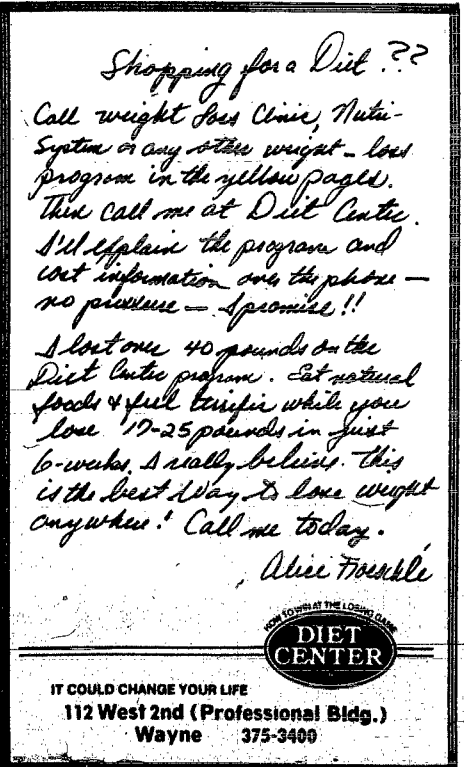 Shopping for a Diet ??
Call weight loss Clinic, Nutri-
System or any other weight-loss
program in the yellow pages.
Then call me at Diet Center.
I'll explain the program and
cost information over the phone —
no pressure — I promise!!
I lost over 40 pounds on the
Diet Center program. Eat natural
foods & feel terrific while you
lose 17-25 pounds in just
6-weeks. I really believe this
is the best way to lose weight
anywhere! Call me today.
Alice Froeschle
HOW TO WIN AT THE LOSING GAME
DIET
CENTER
IT COULD CHANGE YOUR LIFE
112 West 2nd (Professional Bldg.)
Wayne 375-3400